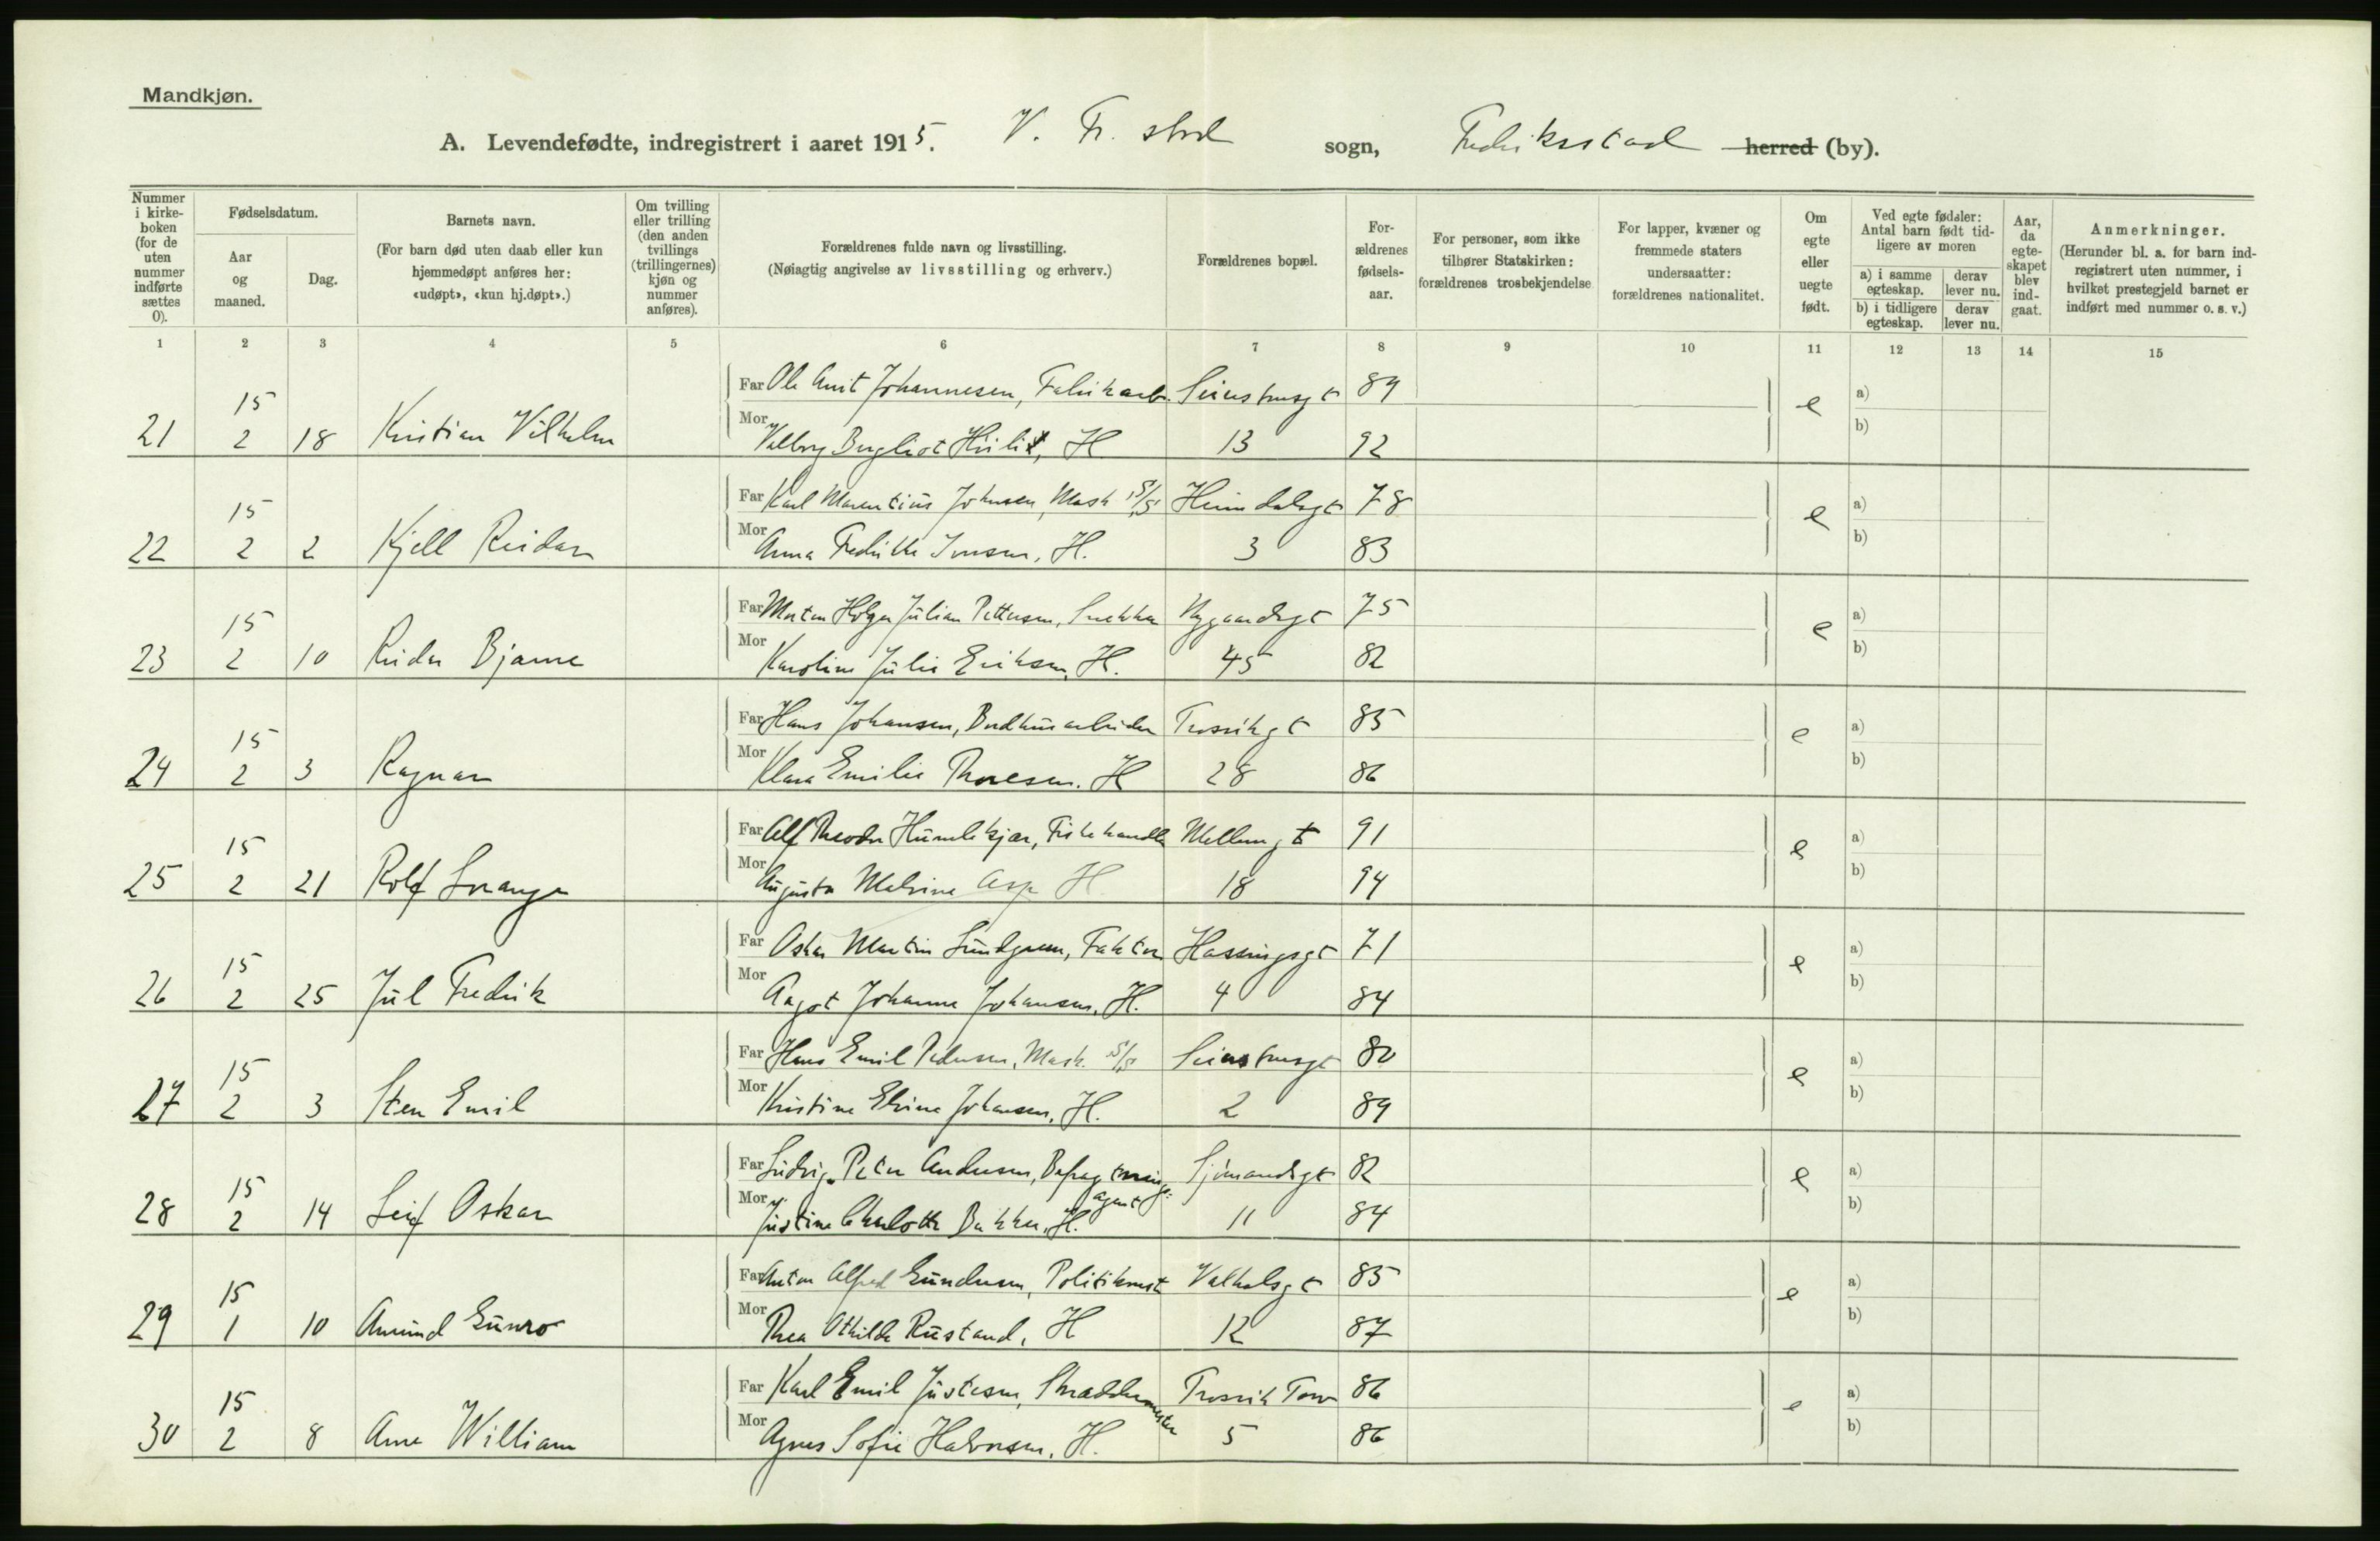 Mandkjøn.
A. Levendefødte, indregistrert i aaret 1915. V. Fr. stad sogn, Fredriksstad herred (by).
Nummer i kirke-boken (for de uten nummer indførte sættes 0).
Fødselsdatum.
Aar og maaned.
Dag.
Barnets navn.
(For barn død uten daab eller kun hjemmedøpt anføres her: «udøpt», «kun hj.døpt».)
Om tvilling eller trilling (den anden tvillings (trillingernes) kjøn og nummer anføres).
Forældrenes fulde navn og livsstilling.
(Nøiagtig angivelse av livsstilling og erhverv.)
Forældrenes bopæl.
For-ældrenes fødsels-aar.
For personer, som ikke tilhører Statskirken: forældrenes trosbekjendelse
For lapper, kvæner og fremmede staters undersaatter: forældrenes nationalitet.
Om egte eller uegte født.
Ved egte fødsler: Antal barn født tid-ligere av moren
a) i samme egteskap.
derav lever nu.
b) i tidligere egteskap.
derav lever nu.
Aar, da egte-skapet blev ind-gaat.
Anmerkninger.
(Herunder bl. a. for barn ind-registrert uten nummer, i hvilket prestegjeld barnet er indført med nummer o. s. v.)
1 2 3 4 5 6 7 8 9 10 11 12 13 14 15
15 Far Ole Johannesen, Fabrikarb. 89 e a)
21 2 18 Kristian Vilhelm Mor Valborg H 13 92 b)
15 Far Karl Marentius Johnsen, Mask Heimdalsgt 78 e a)
22 2 2 Kjell Reidar Mor Anna H. 3 83 b)
15 Far Morten Holger Julian Pettersen, Snekker Nygaardsgt 75 e a)
23 2 10 Reidar Bjarne Mor Karoline Julie Eriksen, H. 45 82 b)
15 Far Hans Johansen, Trosvikgt 85 e a)
24 2 3 Ragnar Mor Klara Emilie Thoresen. H 28 86 b)
15 Far Alf Theodor Humlekjær, Fiskehandler Mellemgt 91 e a)
25 2 21 Rolf Mor Augusta Malvine Asp H. 18 94 b)
15 Far Oskar Martin Lundgreen, Faktor Hassingsgt 71 e a)
26 2 25 Jul Fredrik Mor Aagot Johanne Johansen, H. 4 84 b)
15 Far Hans Emil Pedersen, Mask. 80 e a)
27 2 3 Sten Emil Mor Kristine Elvine Johansen, H. 2 89 b)
15 Far Ludvig Peter Andersen, Befragtnings- Sjømandsgt 82 e a)
agent
28 2 14 Leif Oskar Mor Justine Charlotte Bakke, H. 11 84 b)
15 Far Anton Alfred Gundersen, Politikonst Valhalsgt 85 e a)
29 1 10 Amund Mor Thea Othilde Rustand, H 12 87 b)
15 Far Karl Emil Justesen, Skrædder Trosvik Torv 86 e a)
mester
30 2 8 Arne William Mor Agnes Sofie Halvorsen, H. 5 86 b)